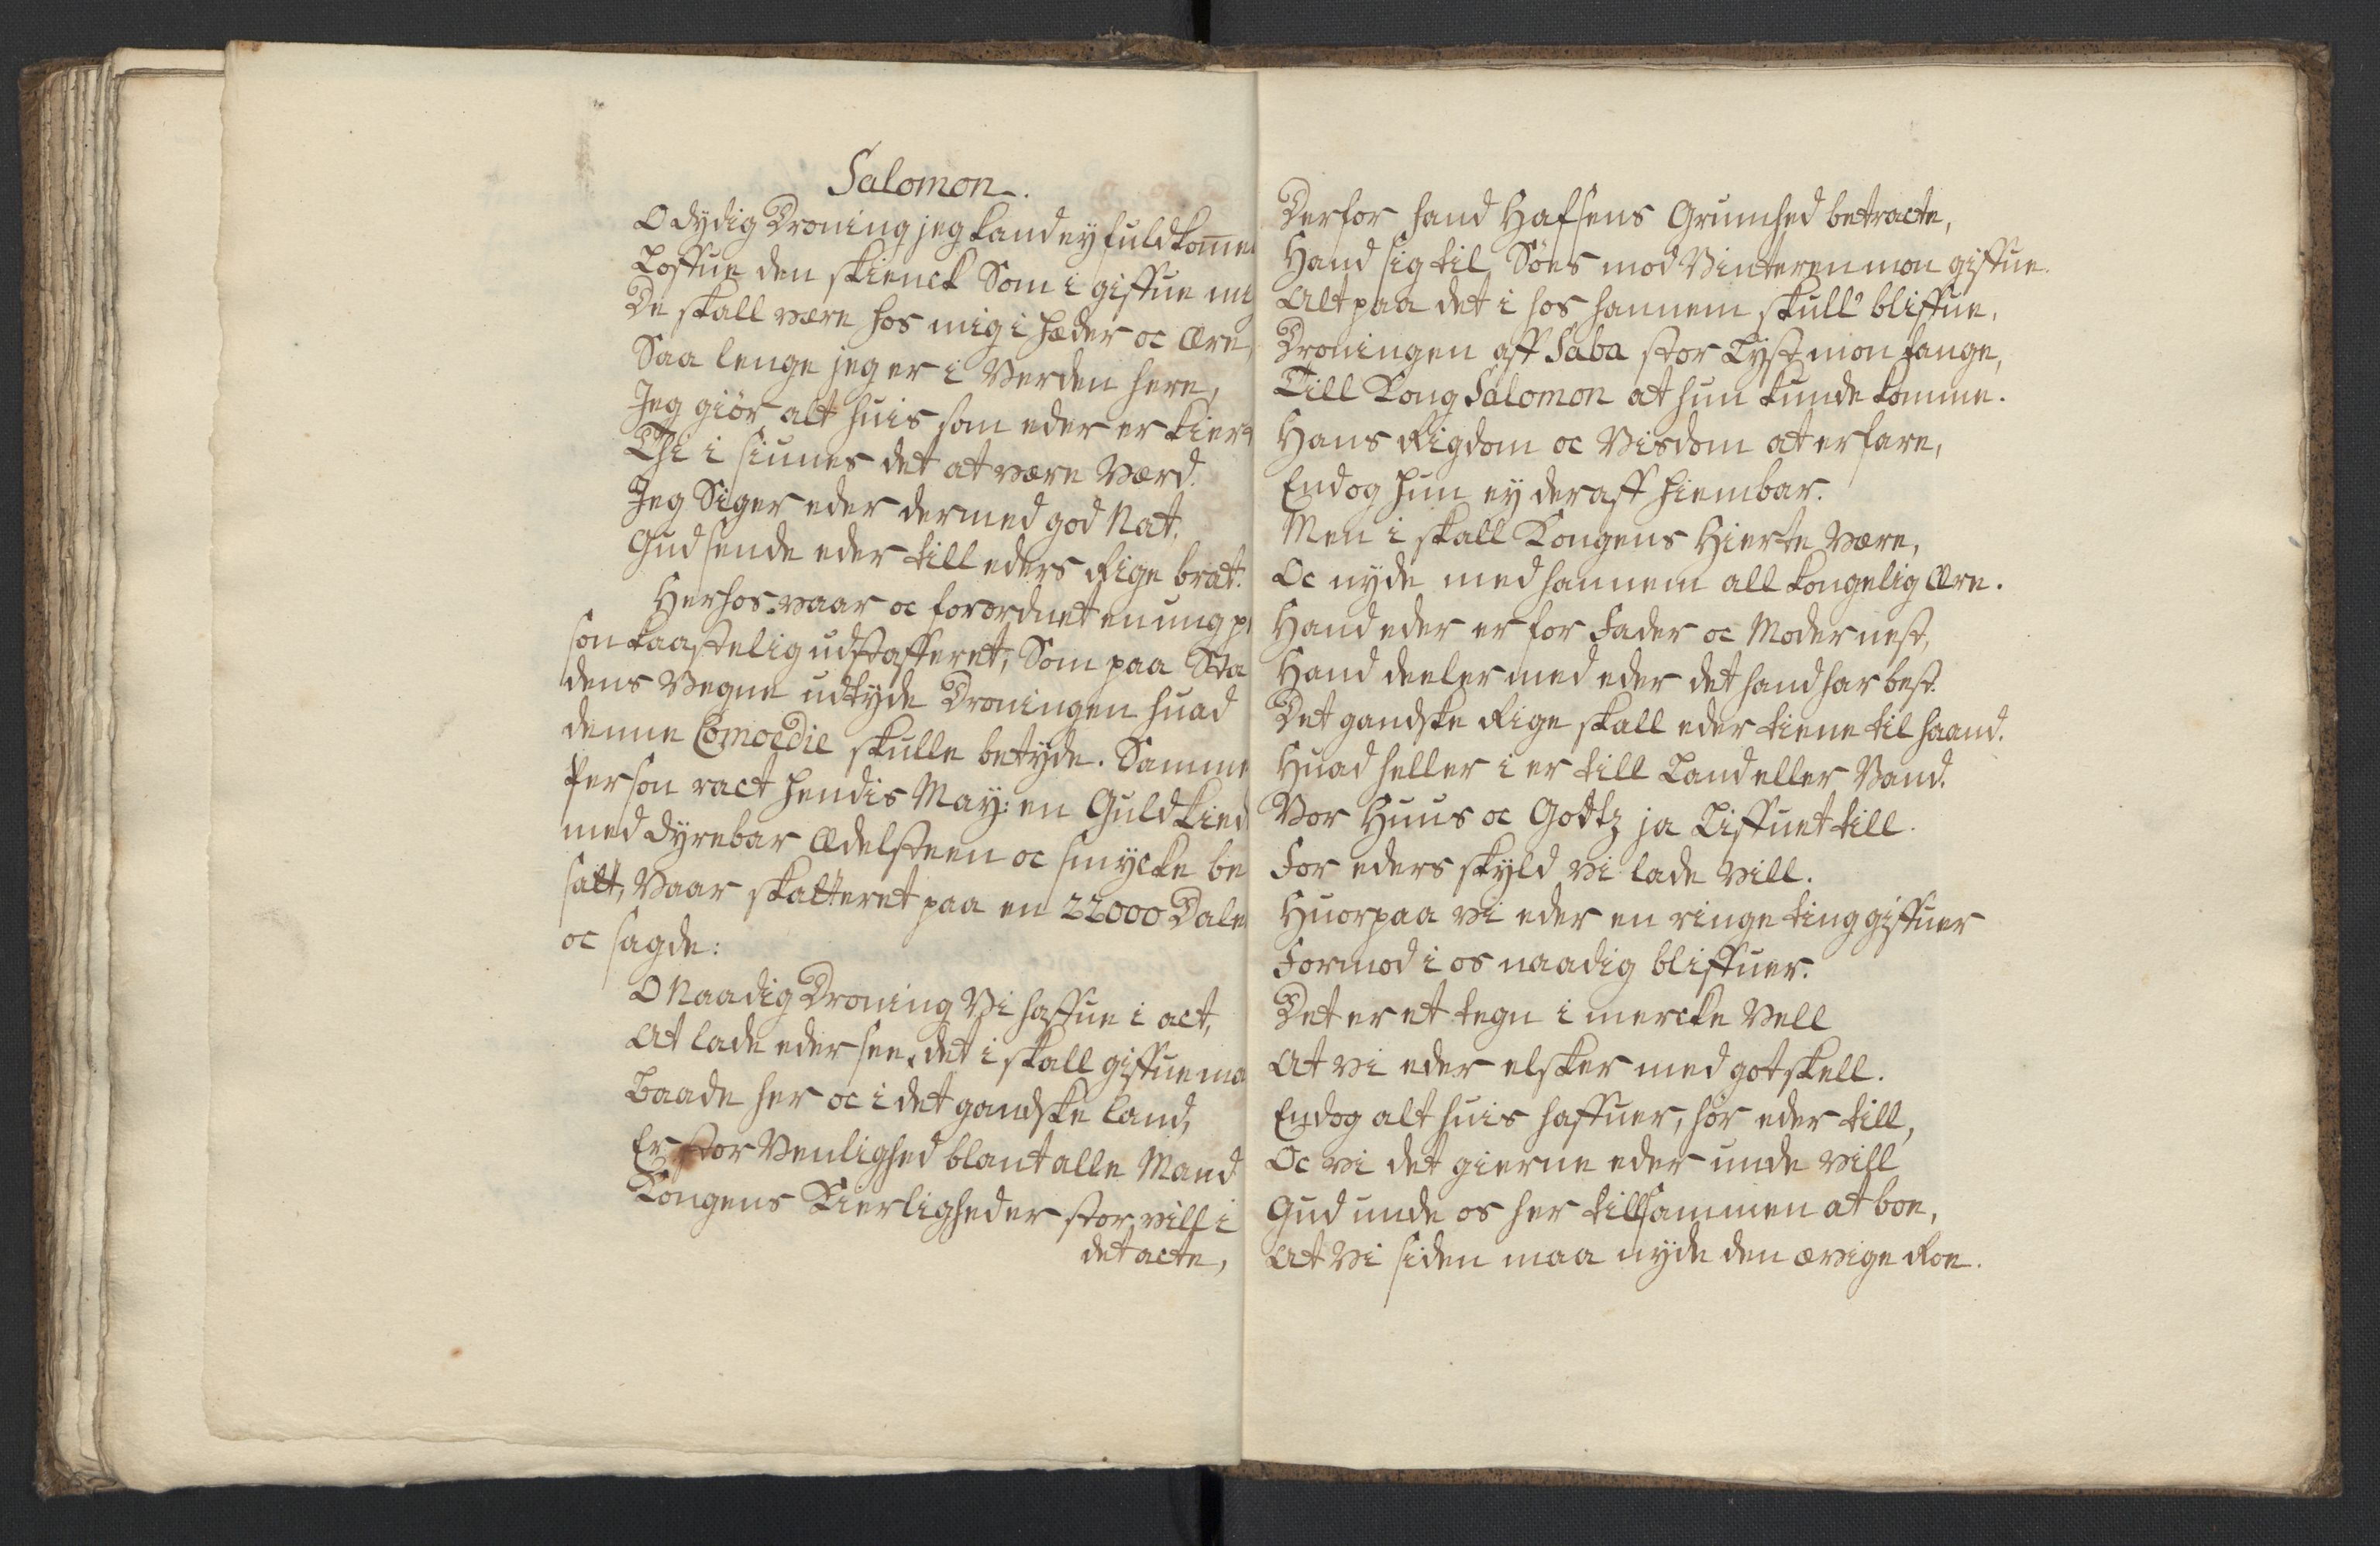 Salomon.
O dydig Droning jeg kand ey fuldkom̄e
Loffue den skienck Som i giffue mig
De skall være hos mig i hæder oc ære,
Saa lenge jeg er i Verden here,
Jeg giör alt huis som eder er kiert
Thi i siunes det at være Værd.
Jeg Siger eder dermed god Nat.
Gud sende eder till eders Rige brat.
Herhos vaar oc forordnet en ung p
son kaastelig udstafferet, Som paa Sta
dens Vegne udtyde Droningen huad
denne Comoedie skulle betyde. Samme
Person ract hendis May: en Guldkied
med dyrebar Ædelsteen oc smycke be
satt, Vaar skatteret paa en 22000 Dale
oc sagde:
O Naadig Droning Vi haffue i act,
At lade eder see, det i skall giffue ma
Baade her oc i det gandske land,
Er stor Venlighed blant alle Mand
Kongens Kierligheder stor, vill i
det acte,
Derfor hand Hafsens Grumhed betracte,
Hand sig til Söes mod Vinteren mon giffue.
Alt paa det i hos hannem skull' bliffue,
Droningen aff Saba stor Lyst mon fange,
Till Kong Salomon at hun kunde komme.
Hans Rigdom oc Visdom at erfare,
Endog hun ey deraff hiembar.
Men i skall Kongens Hierte være,
Oc nyde med hannem all kongelig ære.
Hand eder er for Fader oc Moder nest,
Hand deeler med eder det hand har best.
Det gandske Rige skall eder tiene til haand.
Huad heller i er till Land eller Vand.
Vor Huus oc Gottz ja Liffuet till.
For eders skyld vi lade vill.
Huorpaa vi eder en ringe ting giffuer
Formod i os naadig bliffuer.
Det er et tegn i mercke Vell
At vi eder elsker med got skell.
Endog alt huis haffuer, hör eder till,
Oc vi det gierne eder unde vill
Gud unde os her tillsammen at boe,
At Vi siden maa nyde den ævige Roe.